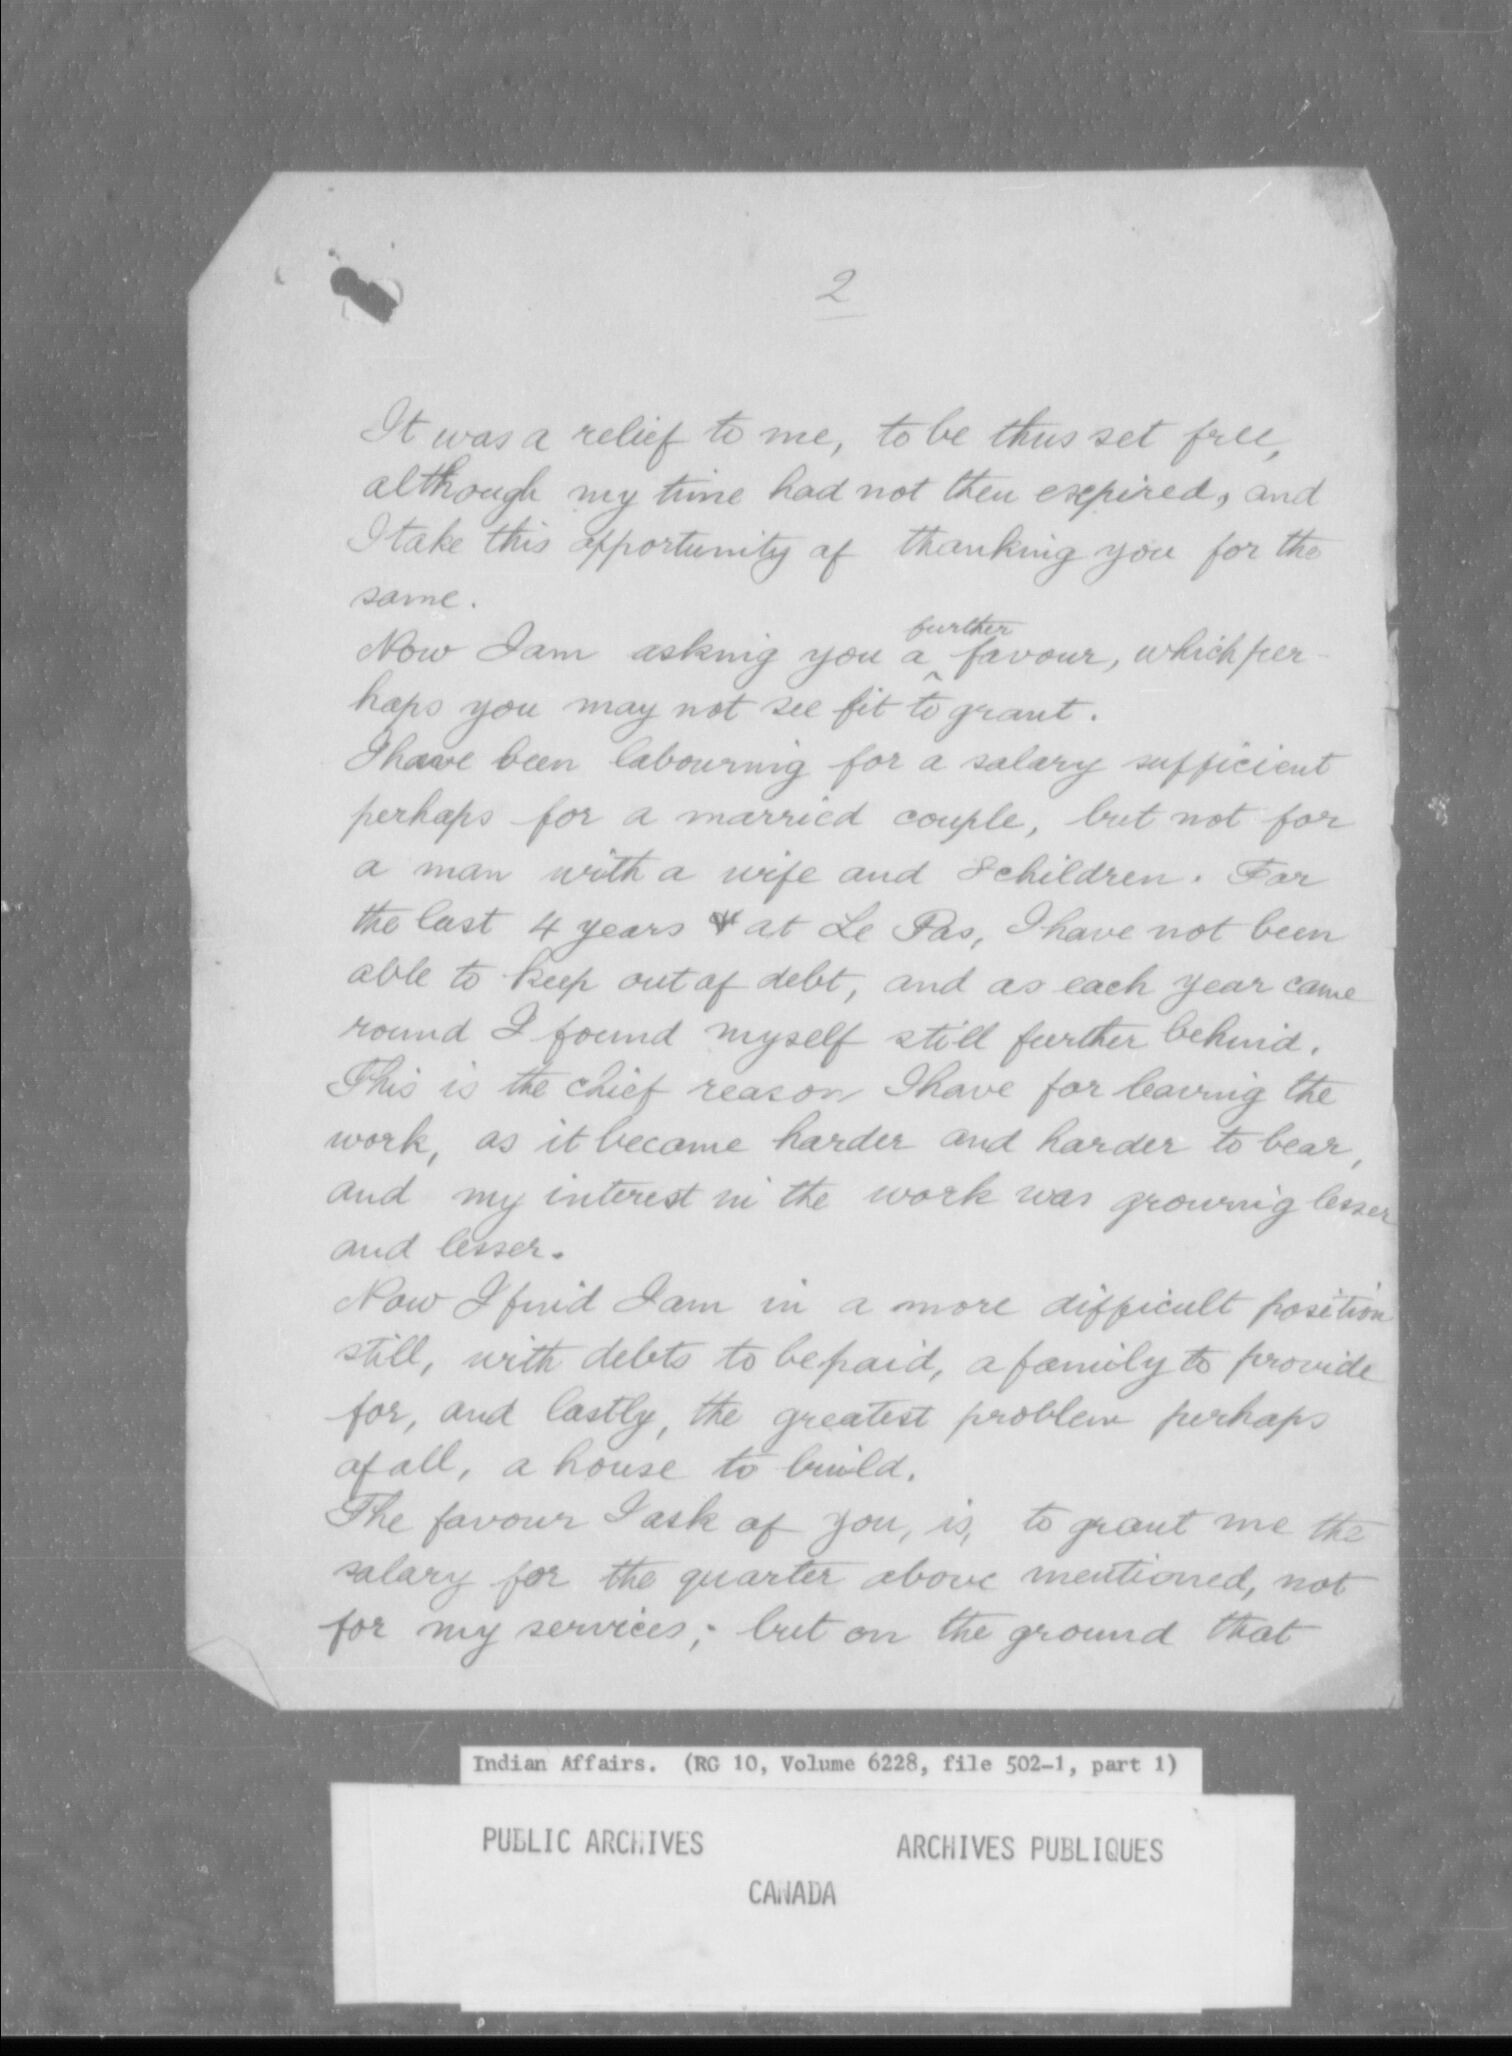 2
It was a relief to me, to be thus set free,
although my time had not then expired, and
I take this opportunity of thanking you for the
same.
further
Now I am asking you a ^ favour, which per-
haps you may not see fit to grant.
I have been labouring for a salary sufficient
perhaps for a married couple, but not for
a man with a wife and 8 children. For
the last 4 years at Le Pas, I have not been
able to keep out of debt, and as each year came
round I found myself still further behind.
This is the chief reason I have for leaving the
work, as it became harder and harder to bear,
and my interest in the work was growing lesser
and lesser.
Now I find I am in a more difficult position
still, with debts to be paid, a family to provide
for, and lastly, the greatest problem perhaps
of all, a house to build.
The favour I ask of you, is, to grant me the
salary for the quarter above mentioned, not
for my services; but on the ground that
Indian Affairs. (RG 10, Volume 6228, file 502-1, part 1)
PUBLIC ARCHIVES ARCHIVES PUBLIQUES
CANADA